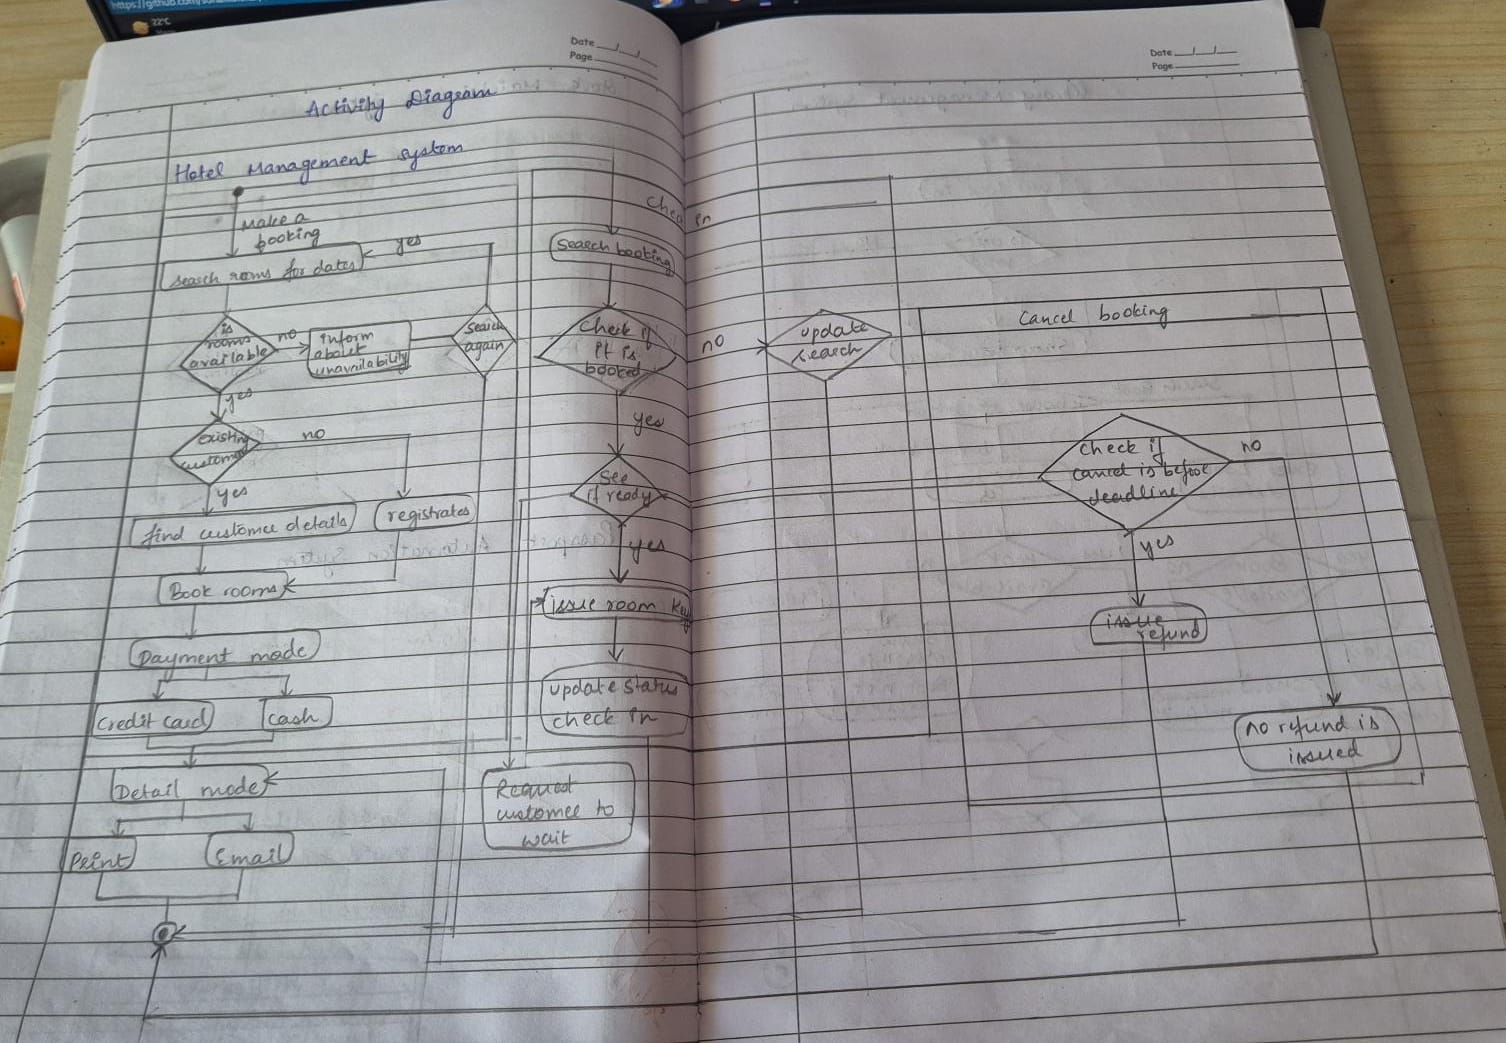 https://github.com/
22°C
Date
Page
Activity Diagram
Hotel Management system
Make a
booking
search rooms for dates
yes
is
rooms
available
no
inform
about
unavailability
Search
again
yes
existing
customer
no
yes
find customer details
registrates
Book rooms
Payment mode
Credit card
Cash
Detail mode
Print
Email
Check in
Search booking
Check if
it is
booked
no
update
search
yes
See
if ready
yes
issue room key
update status
check in
Request
customer to
wait
Date
Page
Cancel booking
check if
cancel is before
deadline
no
yes
issue
refund
no refund is
issued